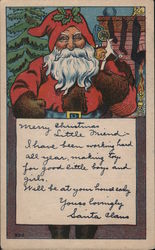 Merry Christmas
Little Friend:-
I have been working hard
All year, making toys
for good little boys and
girls.
Will be at your house early
Yours lovingly
Santa Claus